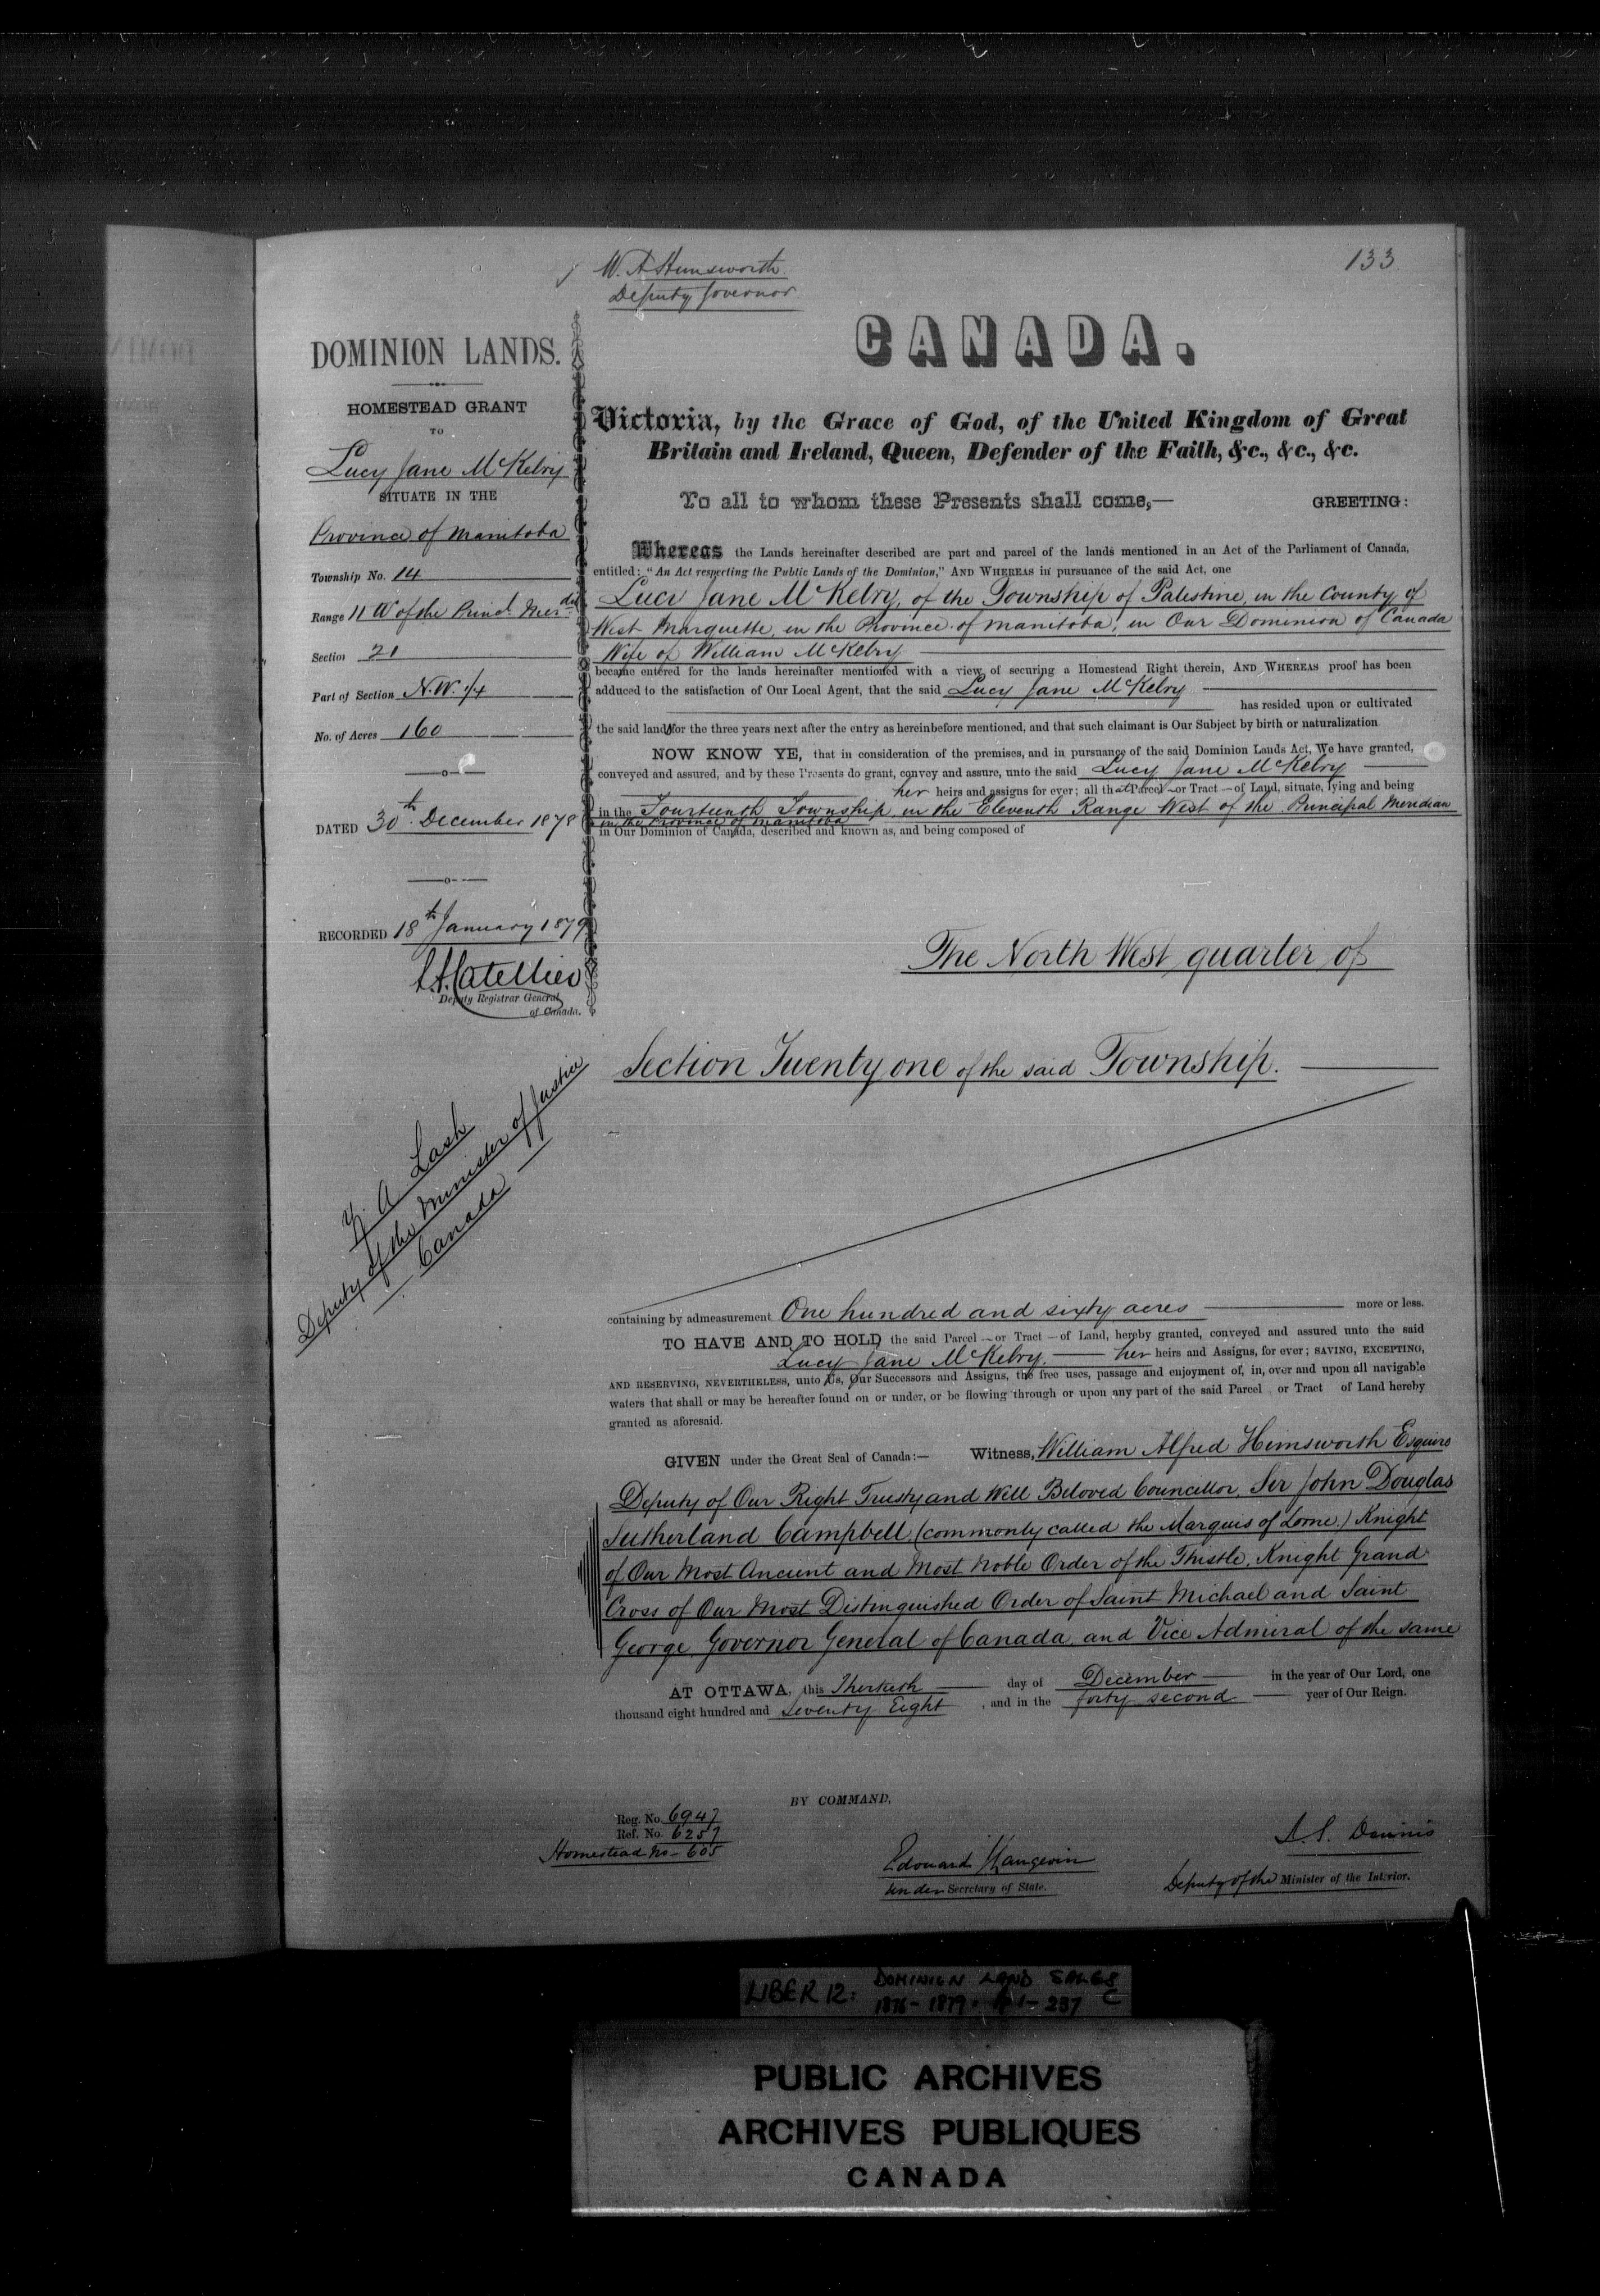 133
W. A. Himsworth
Deputy Governor
DOMINION LANDS.
HOMESTEAD GRANT
TO
Lucy Jane McKelvy
SITUATE IN THE
Province of Manitoba
Township No. 14
Range 11 W of the Princl. Merdn
Section 21
Part of Section N.W. 1/4
No. of Acres 160
DATED 30th December 1878
RECORDED 18th January 1879
L. A. Catellier
Deputy Registrar General
of Canada.
Z. A. Lash
Deputy of the Minister of Justice
Canada
CANADA.
Victoria, by the Grace of God, of the United Kingdom of Great
Britain and Ireland, Queen, Defender of the Faith, &c., &c., &c.
To all to whom these Presents shall come,— GREETING:
Whereas the Lands hereinafter described are part and parcel of the lands mentioned in an Act of the Parliament of Canada,
entitled: "An Act respecting the Public Lands of the Dominion," AND WHEREAS in pursuance of the said Act, one
Lucy Jane McKelvy, of the Township of Palestine, in the County of
West Marquette, in the Province of Manitoba, in Our Dominion of Canada
Wife of William McKelvy
became entered for the lands hereinafter mentioned with a view of securing a Homestead Right therein, AND WHEREAS proof has been
adduced to the satisfaction of Our Local Agent, that the said Lucy Jane McKelvy
has resided upon or cultivated
the said lands for the three years next after the entry as hereinbefore mentioned, and that such claimant is Our Subject by birth or naturalization
NOW KNOW YE, that in consideration of the premises, and in pursuance of the said Dominion Lands Act, We have granted,
conveyed and assured, and by these Presents do grant, convey and assure, unto the said Lucy Jane McKelvy
her heirs and assigns for ever; all that Parcel or Tract of Land, situate, lying and being
in the Fourteenth Township, in the Eleventh Range West of the Principal Meridian
in the Province of Manitoba
in Our Dominion of Canada, described and known as, and being composed of
The North West quarter of
Section Twenty one of the said Township.
containing by admeasurement One hundred and sixty acres more or less.
TO HAVE AND TO HOLD the said Parcel or Tract of Land, hereby granted, conveyed and assured unto the said
Lucy Jane McKelvy, her heirs and Assigns, for ever; SAVING, EXCEPTING,
AND RESERVING, NEVERTHELESS, unto Us, Our Successors and Assigns, the free uses, passage and enjoyment of, in, over and upon all navigable
waters that shall or may be hereafter found on or under, or be flowing through or upon any part of the said Parcel or Tract of Land hereby
granted as aforesaid.
GIVEN under the Great Seal of Canada:— Witness, William Alfred Himsworth Esquire
Deputy of Our Right Trusty and Well Beloved Councillor, Sir John Douglas
Sutherland Campbell, (commonly called the Marquis of Lorne,) Knight
of Our Most Ancient and Most Noble Order of the Thistle, Knight Grand
Cross of Our Most Distinguished Order of Saint Michael and Saint
George, Governor General of Canada, and Vice Admiral of the same
AT OTTAWA, this Thirtieth day of December in the year of Our Lord, one
thousand eight hundred and Seventy Eight, and in the forty second year of Our Reign.
BY COMMAND,
Reg. No. 6947
Ref. No. 6257
Homestead No - 605
Edouard J Langevin
Under Secretary of State.
J. S. Dennis
Deputy of the Minister of the Interior.
LIBER 12: DOMINION LAND SALES
1876-1879. 1-237 C
PUBLIC ARCHIVES
ARCHIVES PUBLIQUES
CANADA